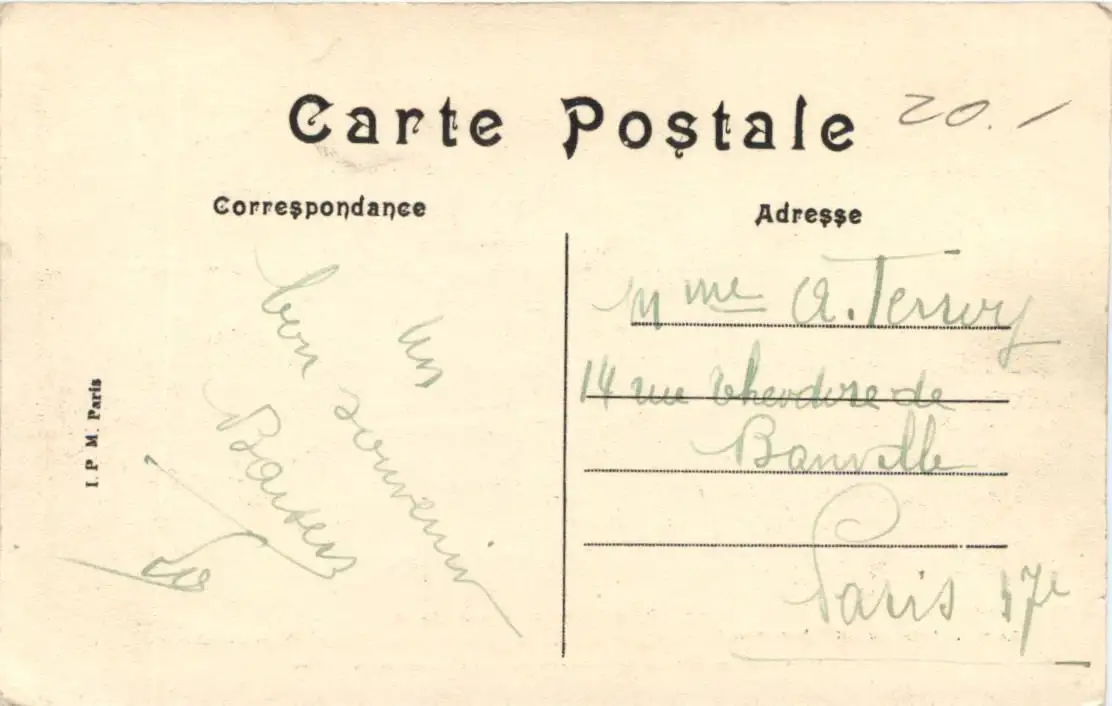 Carte Postale 20.-
Correspondance
Adresse
Un
bon souvenir
I. P. M. Paris
Mme A.
14 rue Theodore de
Banville
Paris 17e